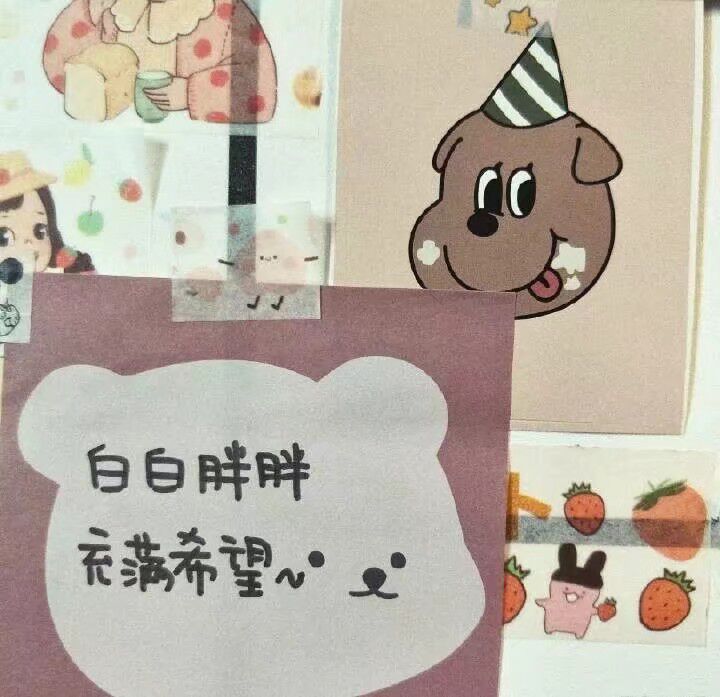 白白胖胖
充满希望~